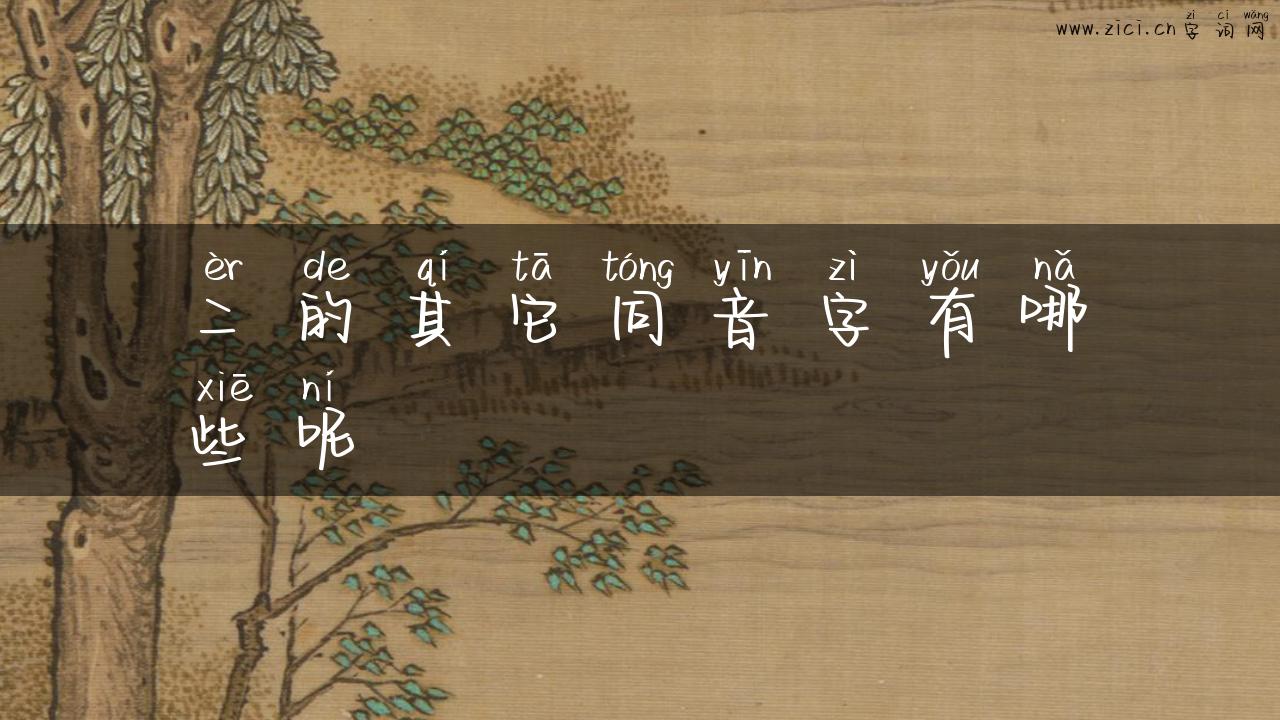 zì cí wǎng
www.zici.cn字词网
èr de qí tā tóng yīn zì yǒu nǎ
二的其它同音字有哪
xiē ní
些呢